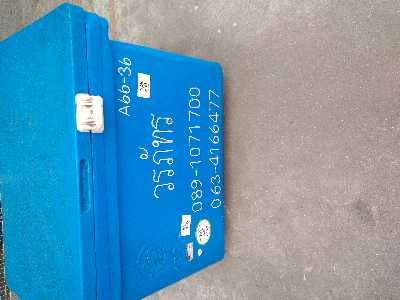 A66-36
วรภัทร
089-1071700
063-4166477